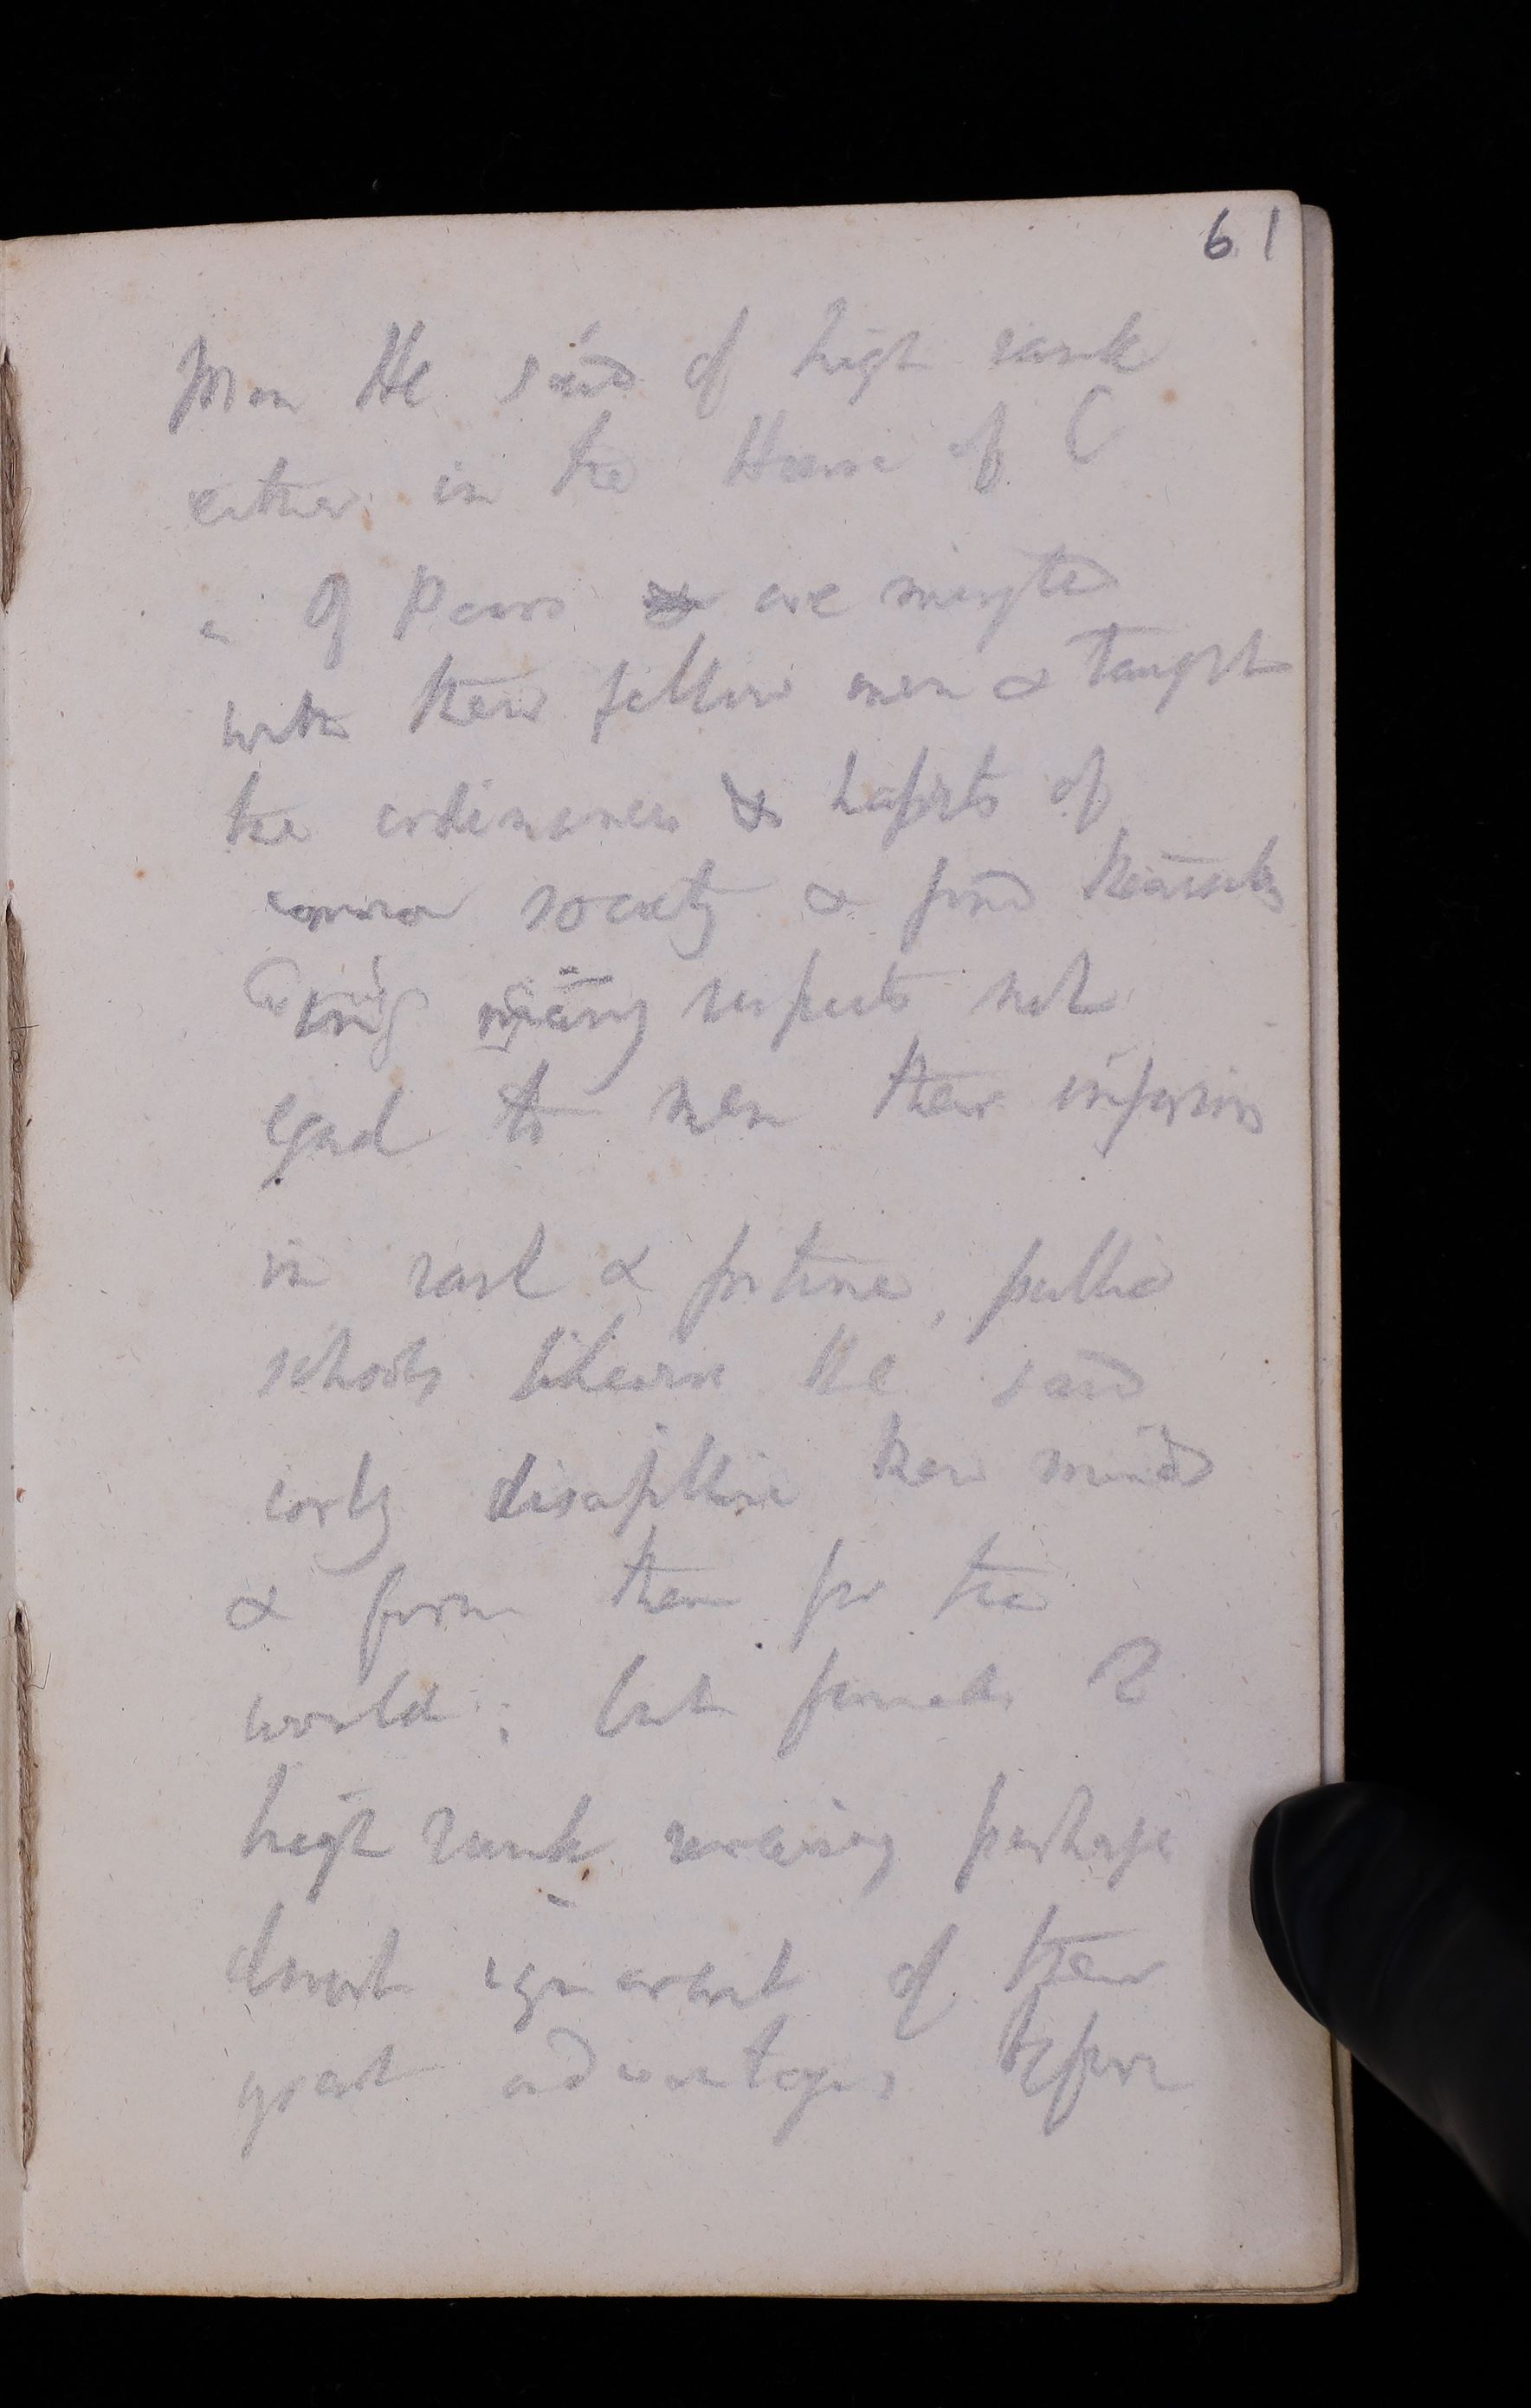 61
Men He said of high rank
either in the House of C
or Of Peers are mingled
with their fellow men & taught
the ordinances & habits of
common society & find themselves
in many respects not
equal to men their inferiors
in rank & fortune, public
schools likewise He said
early discipline their minds
& form them for the
world; but females of
high rank remaining perhaps
almost ignorant of their
great advantages before